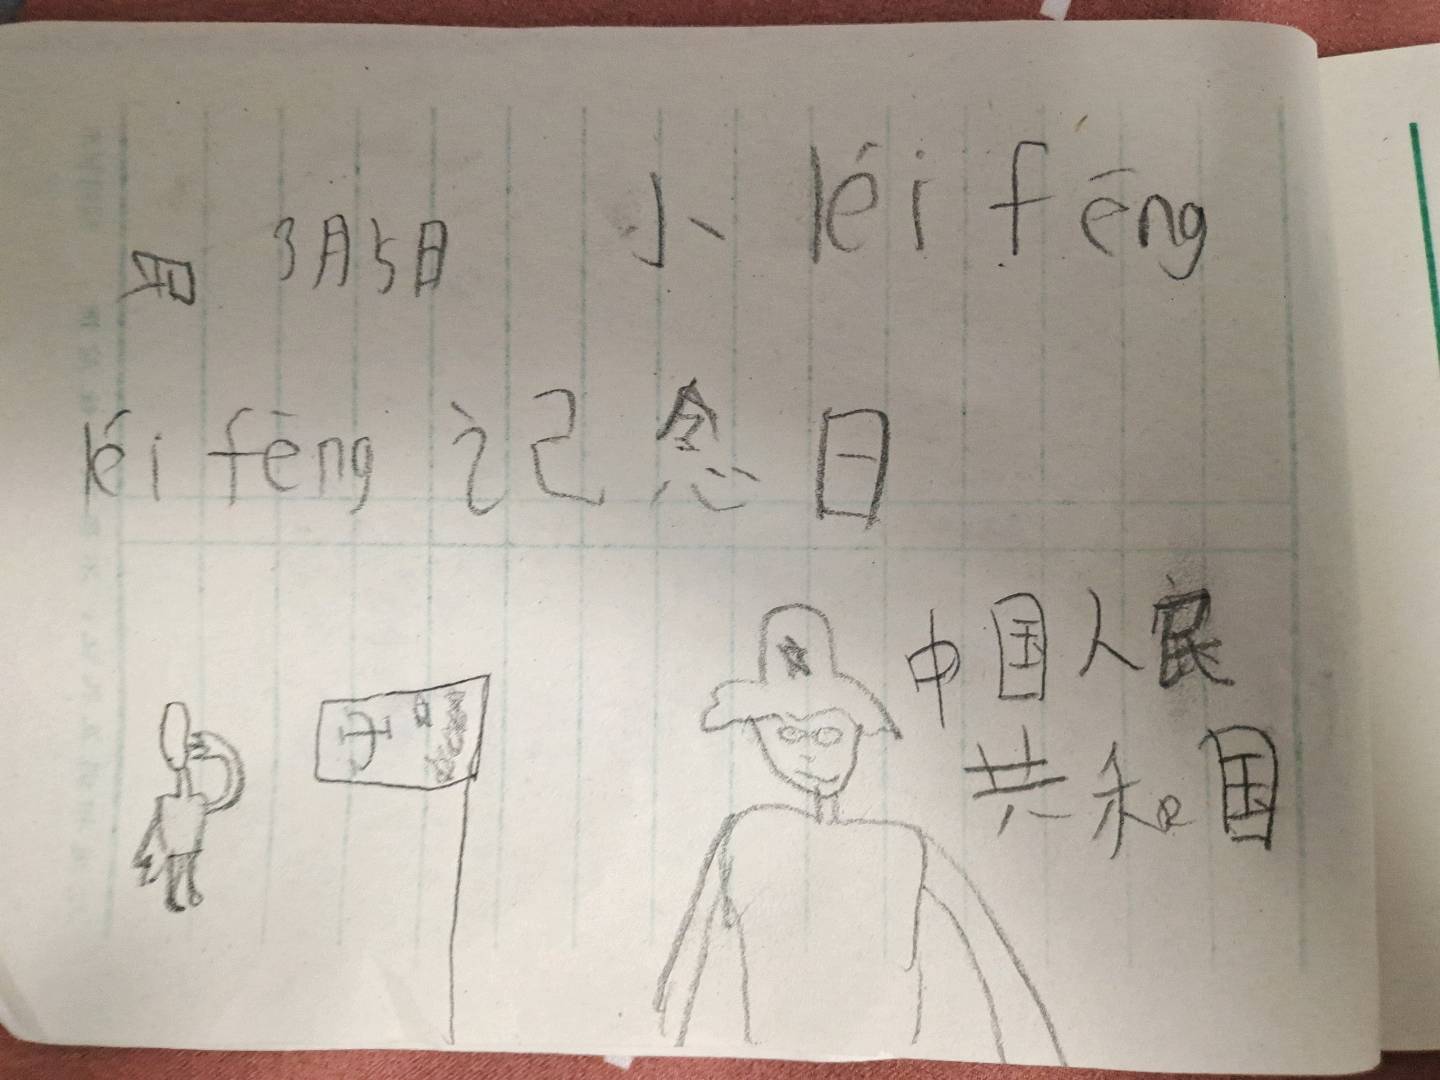 3月5日 小léi fēng
léi fēng 记念日
中国人民
共和国